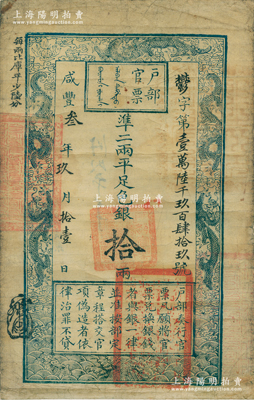 上海阳明拍卖
户部官票
鬱字第壹萬陸千玖百肆拾玖號
準二兩平足色銀拾兩
咸豐叁年玖月拾壹日
每兩比庫平少陸分
户部奏行官
票凡願將官
票兌換銀錢
者與銀一律
並准按部定
章程搭交官
項偽造者依
律治罪不貸
上海阳明拍卖